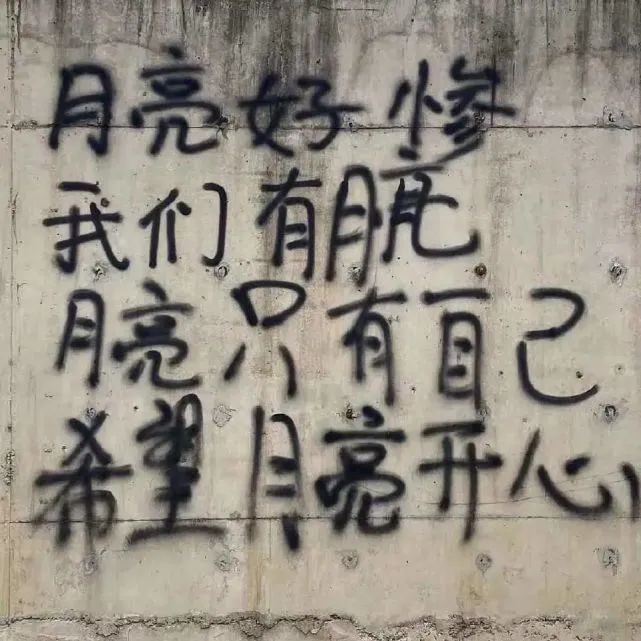 月亮好惨
我们有月亮
月亮只有自己
希望月亮开心